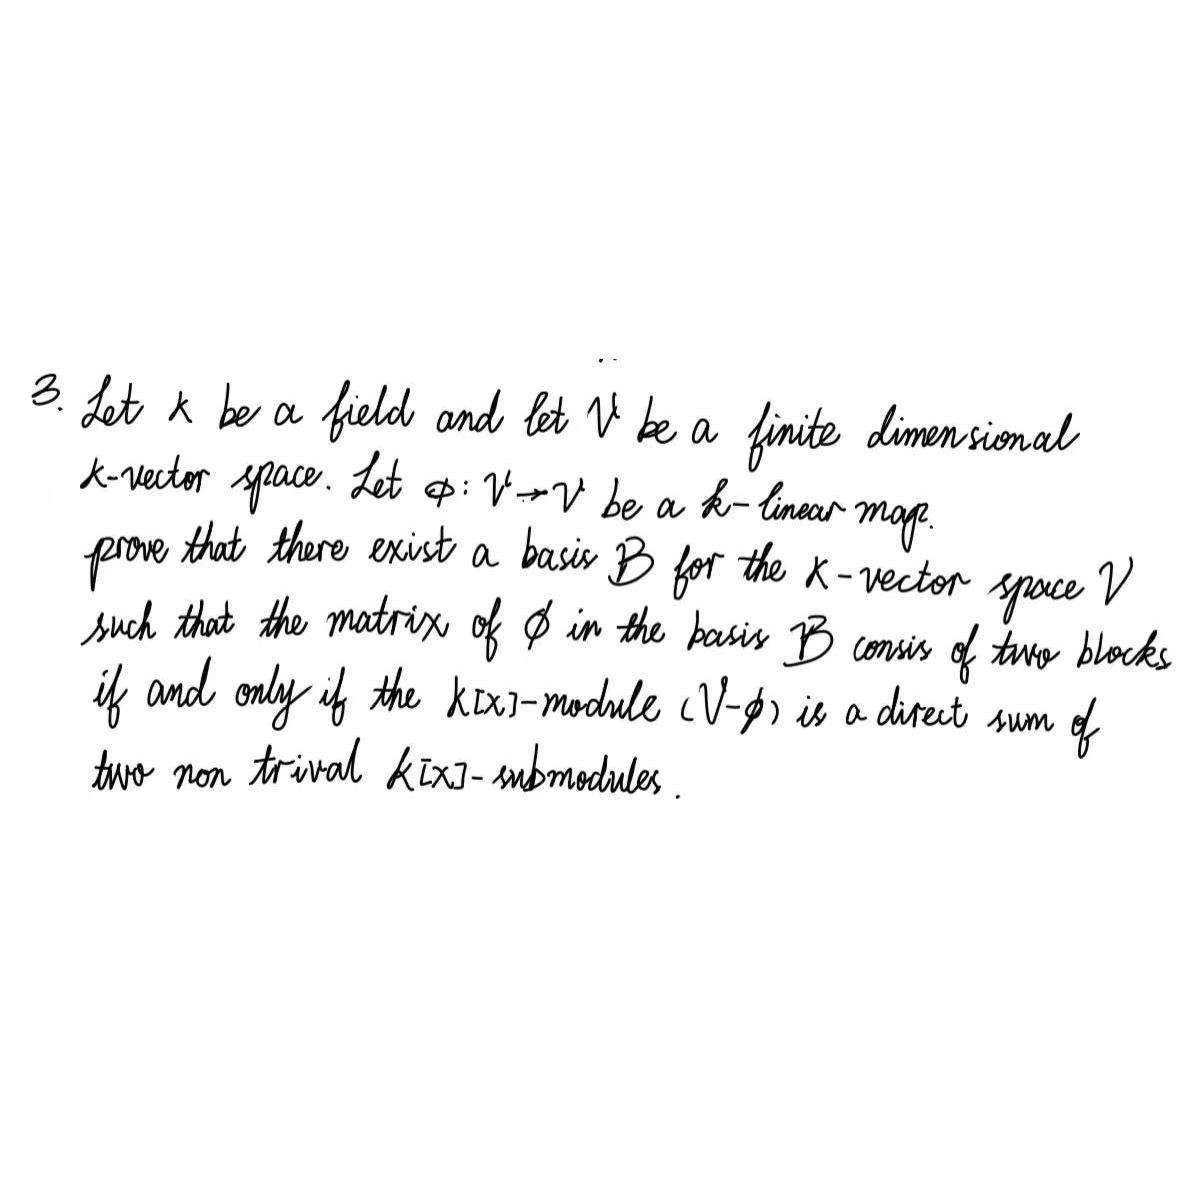 3. Let k be a field and let V be a finite dimensional
k-vector space. Let φ: V→V be a k-linear map.
prove that there exist a basis B for the k-vector space V
such that the matrix of φ in the basis B consis of two blocks
if and only if the k[x]-module (V-φ) is a direct sum of
two non trival k[x]-submodules.